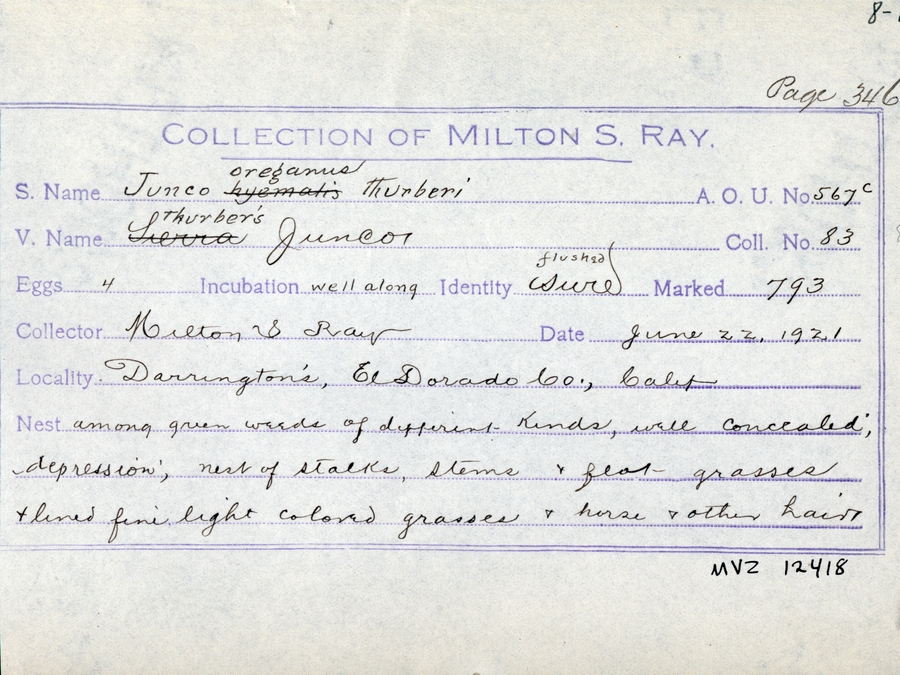 8-
Page 346
COLLECTION OF MILTON S. RAY.
oreganus
S. Name Junco hyemalis thurberi A. O. U. No. 567c
thurber's
V. Name Sierra Junco Coll. No. 83
flushed
Eggs 4 Incubation well along Identity sure Marked 793
Collector Milton S Ray Date June 22, 1921
Locality Darrington's, El Dorado Co., Calif
Nest among green weeds of different kinds, well concealed;
depression; nest of stalks, stems & flat grasses
& lined fine light colored grasses & horse & other hair
MVZ 12418